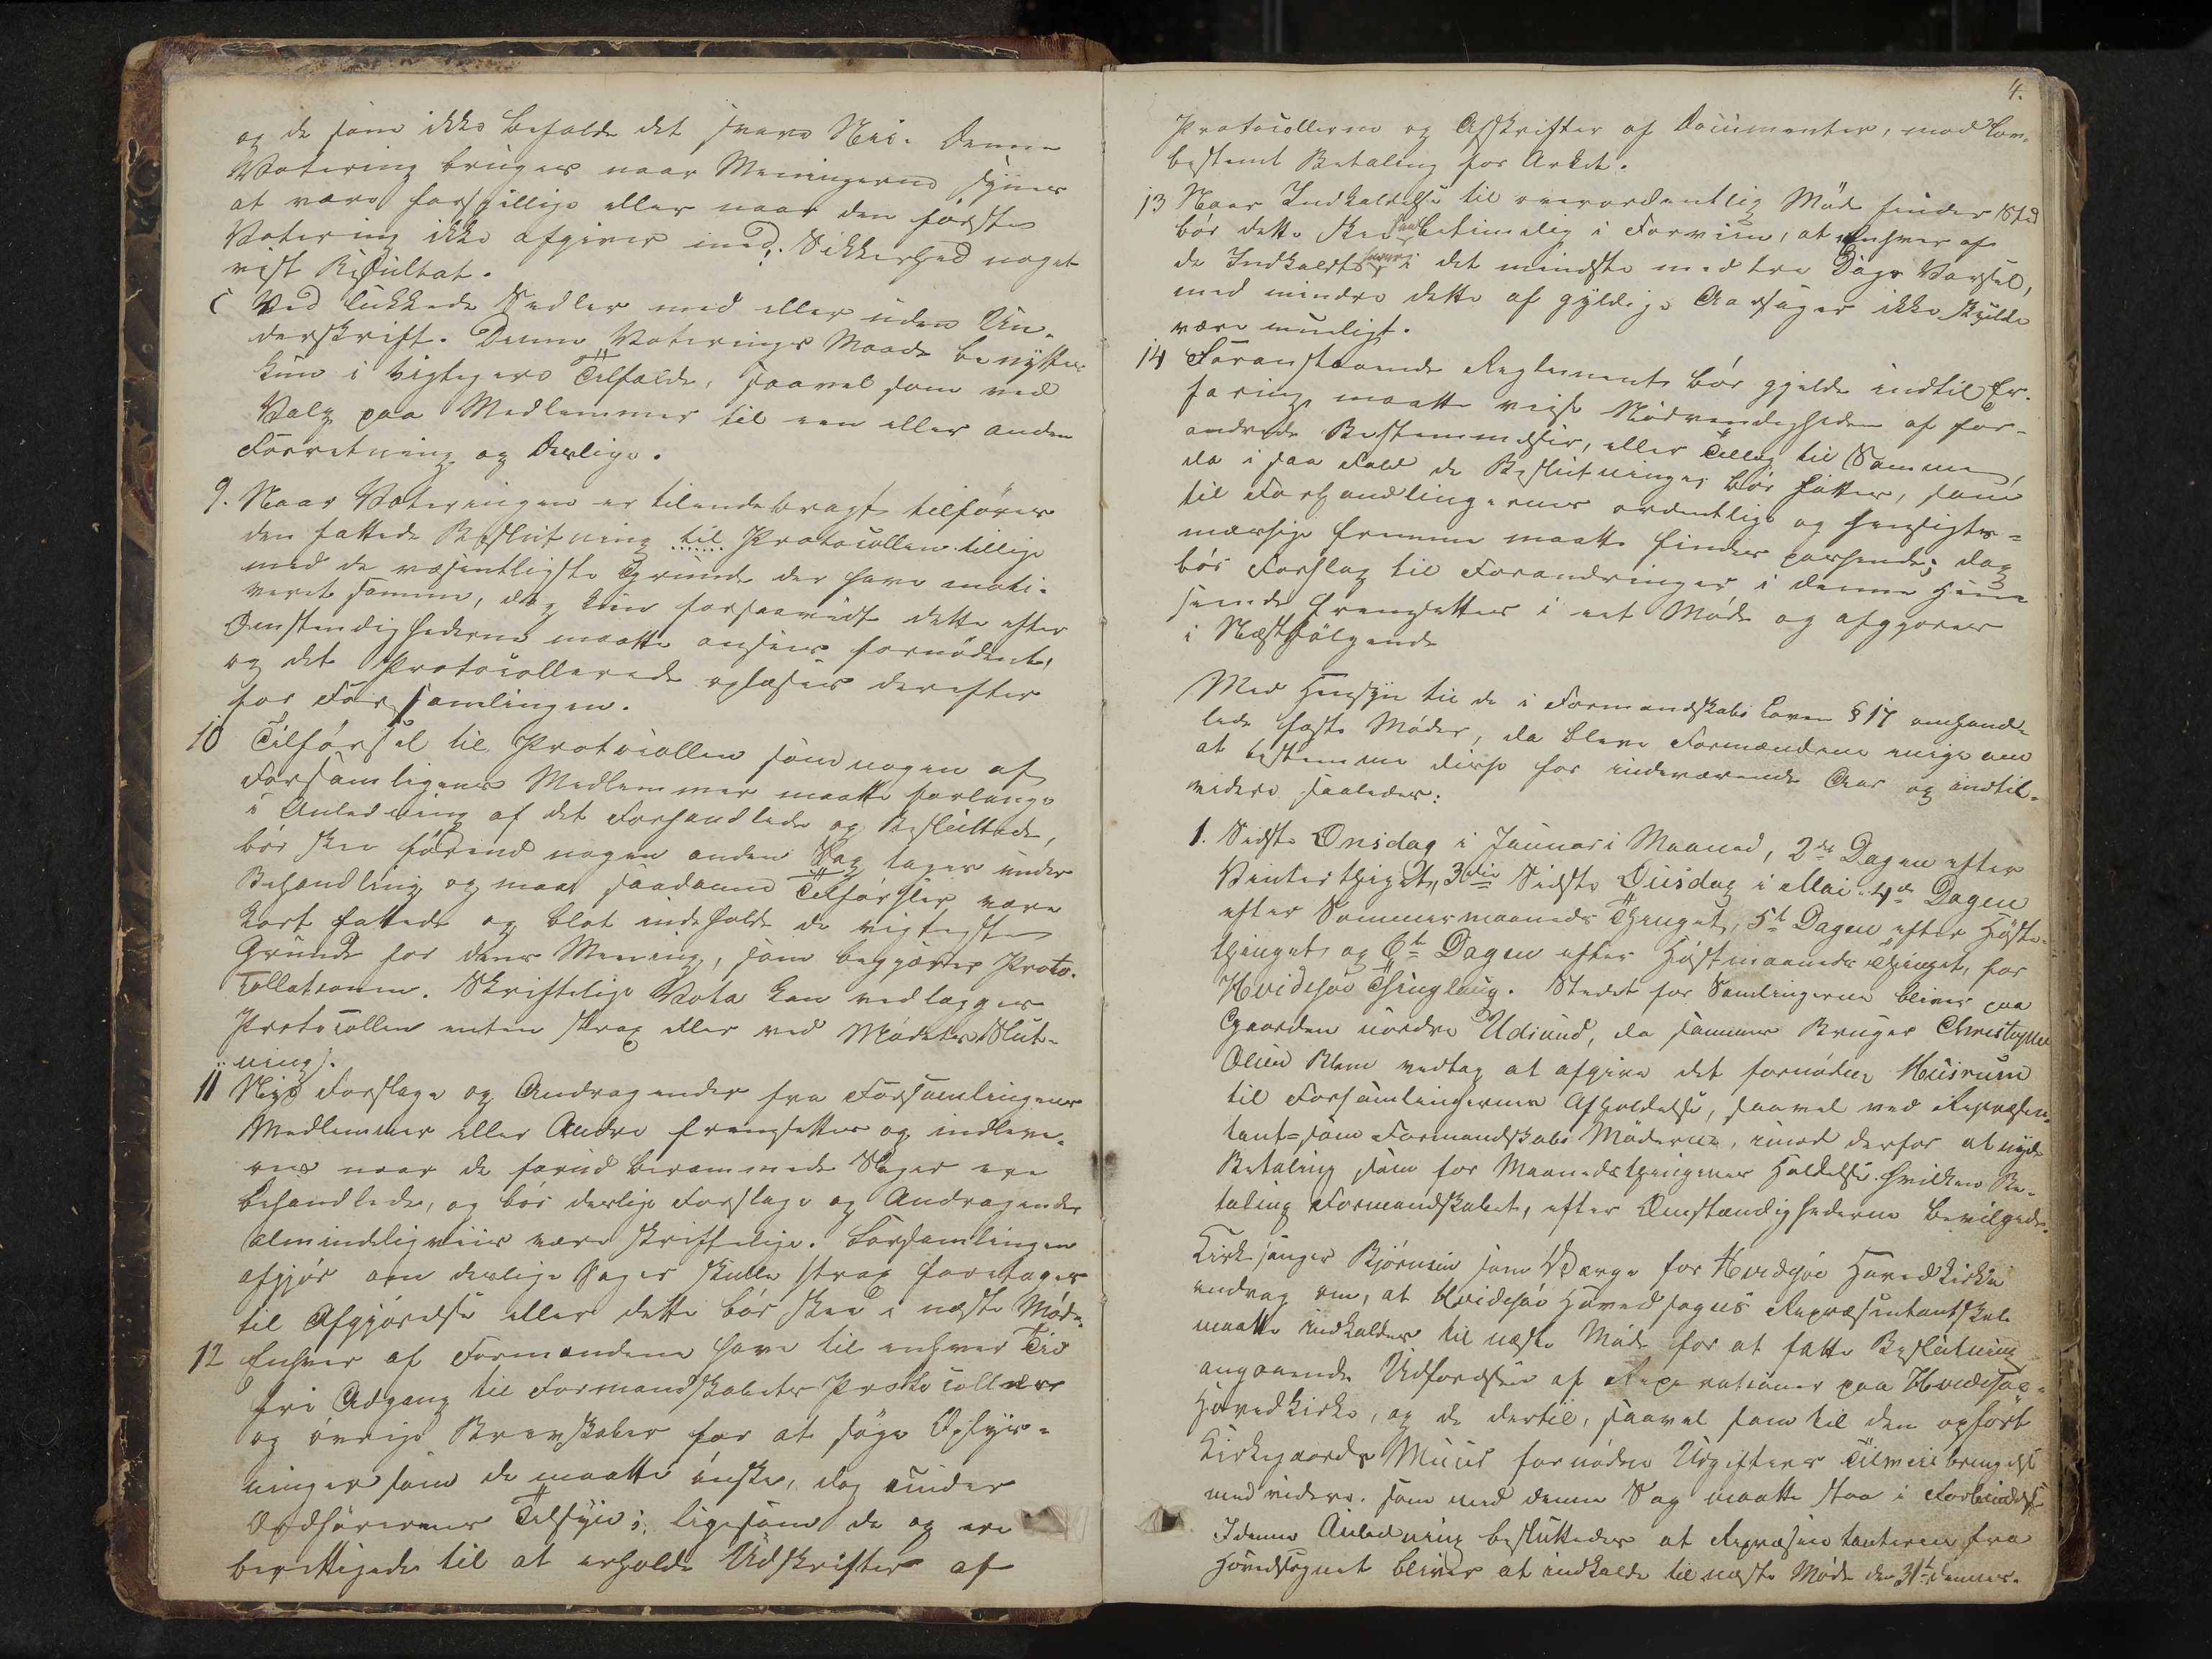 og de som ikke beholde det svare Nei. Denne
Votering bruges naar Meningerne synes
at være forskjellige eller naar den første
Votering ikke afgiver med Sikkerhed noget
vist Resultat.
c Ved lukkede Sedler med eller uden Un-
derskrift. Denne Voterings Maade benyttes
kun i vigtigere Tilfælde, saavel som ved
Valg paa Medlemmer til een eller anden
Forretning og Deslige.
9. Naar Voteringen er tilendebragt tilføres
den fattede Beslutning til Protocollen tillige
med de væsentligste Grunde der have moti-
veret samme, dog kun forsaavidt dette efter
Omstendighederne maatte ansees fornødent,
og det Protocollerede oplæses derefter
for Forsamlingen.
10 Tilførsel til Protocollen som nogen af
Forsamligens Medlemmer maatte forlange
i Anledning af det Forhandlede og Besluttede,
bør skee førend nogen anden Sag tages under
Behandling og maa saadanne Tilførsler være
kort fattede og blot indeholde de vigtigste
Grunde for dens Mening, som begjærer Proto-
collationen. Skriftelige Vota kan vedlægges
Protocollen enten strax eller ved Mødets Slut-
ning.
11 Nye Forslage og Andragender fra Forsamlingens
Medlemmer eller Andre fremsettes og indleve-
res naar de forud berammede Sager ere
behandlede, og bør deslige Forslage og Andragender
almindeligviis være skriftelige. Forsamlingen
afgjør om deslige Sager skulle strax foretages
til Afgjørelse eller dette bør skee i næste Møde.
12 Enhver af Formændene have til enhver Tid
fri Adgang til Formandskabets Protocoller
og øvrige Brevskaber for at søge Oplys-
ninger som de maatte ønske, dog under
Ordførerens Tilsyn; ligesom de og ere
berettigede til at erholde Udskrifter af
4.
Protocollerne og Afskrifter af Documenter, mod lov-
bestemt Betaling for Arket.
13 Naar Indkaldelse til overordentlig Møde finder Sted
bør dette skee saa betimelig i Forveien, at enhver af
de Indkaldte haver i det mindste med tre Dags Varsel,
med mindre dette af gyldige Aarsager ikke skulde
være mueligt.
14 Foranstaaende Reglement bør gjelde indtil Er-
faring maatte viise Nødvendigheden af for-
andrede Bestemmelser, eller Tillæg til Samme,
da i saa Fald de Beslutninger bør fattes, som
til Forhandlingernes ordentlige og hensigts-
mæssige Fremme maatte findes passende; dog
bør Forslag til Forandringer i denne Hen-
seende fremsettes i eet Møde og afgjøres
i Næstfølgende
Med Hensyn til de i Formandskabs Loven § 17 omhand-
lede faste Møder, da bleve Formændene enige om
at bestemme disse for indeværende Aar og indtil-
videre saaledes:
1. Sidste Onsdag i Januari Maaned, 2de Dagen efter
Vinterthinget, 3die Sidste Onsdag i Mai 4de Dagen
efter Sommermaaneds Thinget, 5te Dagen efter Høste-
thinget, og 6te Dagen efter Høstmaaneds Thinget, for
Hvidesøe Thinglaug. Stedet for Samlingerne bliver paa
Gaarden nordre Udsund, da sammes Bruger Christopher
Olsen Blom vedtog at afgive det fornødne Huusrum
til Forsamlingernes Afholdelse, saavel ved Repræsen-
tant- som Formandskabs Møderne, imod derfor at nyde
Betaling som for Maanedsthingenes Holdelse hvilken Be-
taling Formandskabet, efter Omstændighederne bevilgede.
Kirkesanger Bjørnsen som Værge for Hvidesøe Hovedkirke
androg om, at Hvidesøe Hovedsogns Repræsentantskab
maatte indkaldes til næste Møde for at fatte Beslutning
angaaende Udførelsen af Reparationer paa Hvidesøe-
Hovedkirke, og de dertil, saavel som til den opført
Kirkegaards Muur fornødne Udgifters Tilveiebringelse
med videre som med denne Sag maatte staa i Forbindelse
I denne Anledning besluttedes at Repræsentanterne fra
Hovedsognet bliver at indkalde til næste Møde den 31te dennes.